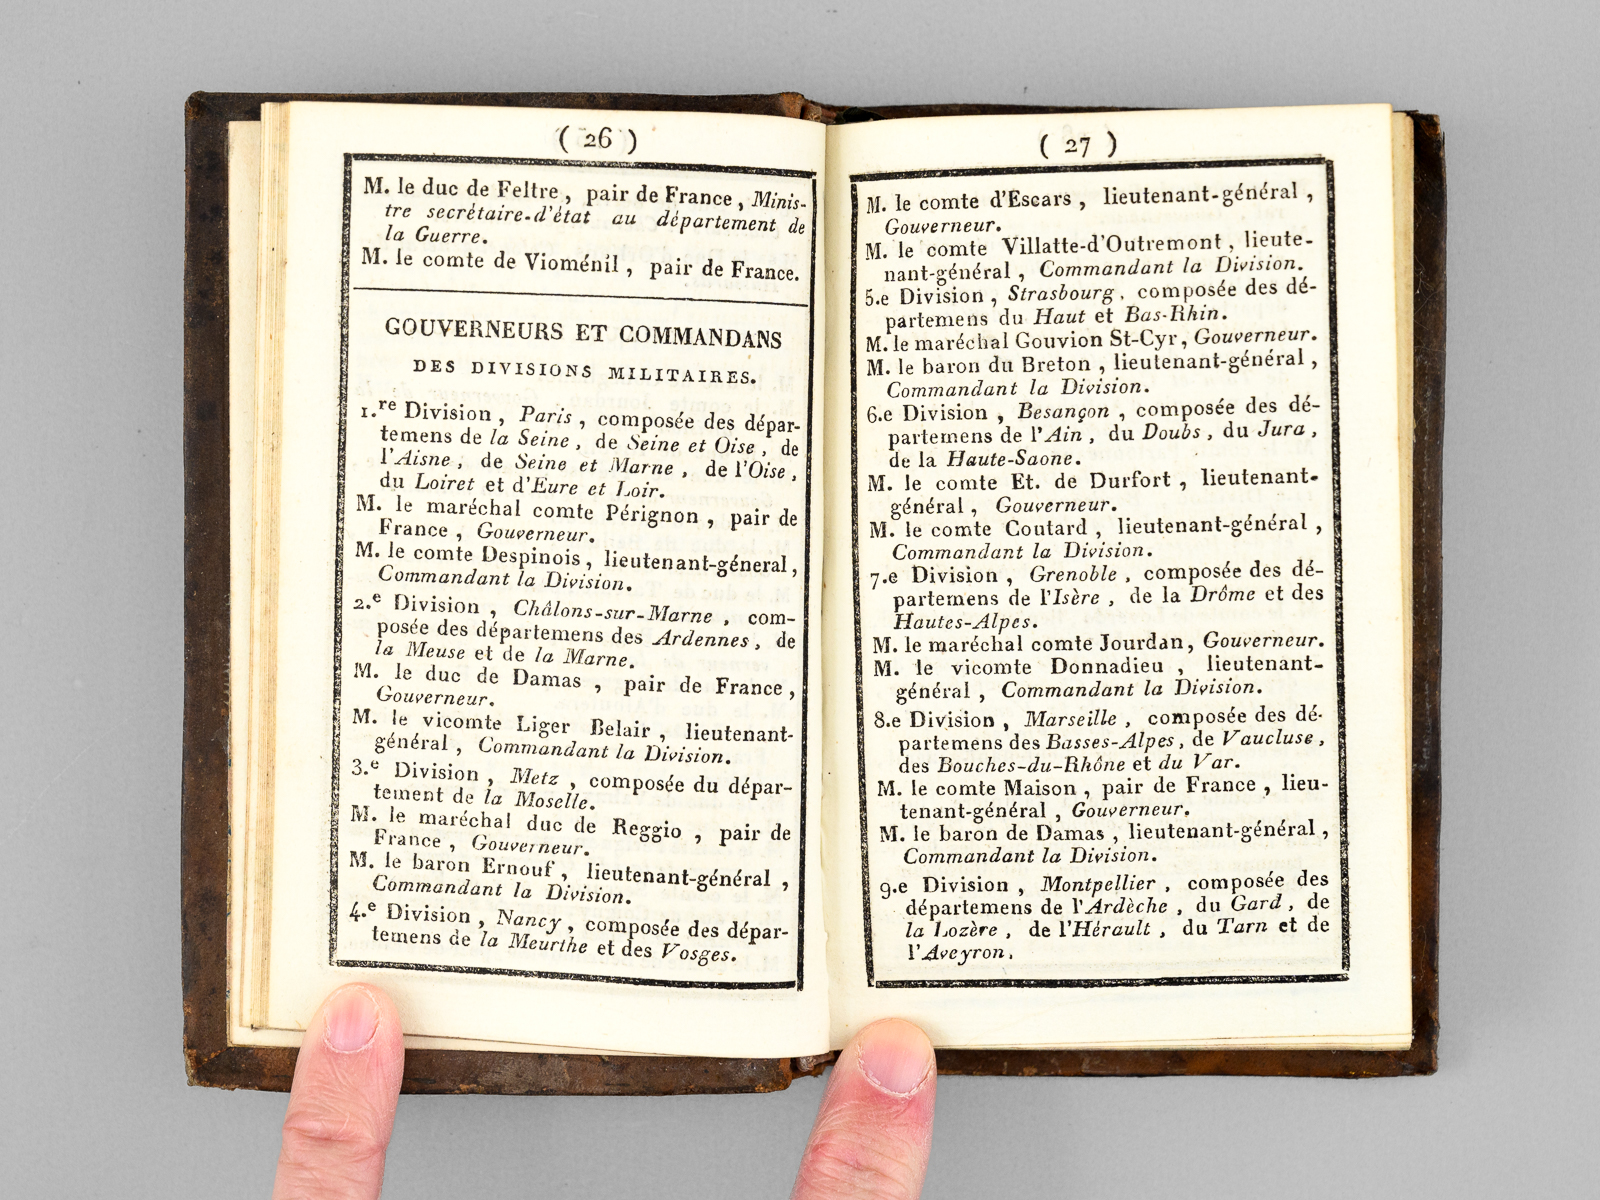 ( 26 )
M. le duc de Feltre , pair de France , Minis-
tre secrétaire-d'état au département de
la Guerre.
M. le comte de Vioménil , pair de France.
GOUVERNEURS ET COMMANDANS
DES DIVISIONS MILITAIRES.
1.re Division , Paris , composée des dépar-
temens de la Seine , de Seine et Oise , de
l'Aisne , de Seine et Marne , de l'Oise ,
du Loiret et d'Eure et Loir.
M. le maréchal comte Pérignon , pair de
France , Gouverneur.
M. le comte Despinois , lieutenant-géneral ,
Commandant la Division.
2.e Division , Châlons-sur-Marne , com-
posée des départemens des Ardennes , de
la Meuse et de la Marne.
M. le duc de Damas , pair de France ,
Gouverneur.
M. le vicomte Liger Belair , lieutenant-
général , Commandant la Division.
3.e Division , Metz , composée du dépar-
tement de la Moselle.
M. le maréchal duc de Reggio , pair de
France , Gouverneur.
M. le baron Ernouf , lieutenant-général ,
Commandant la Division.
4.e Division , Nancy , composée des dépar-
temens de la Meurthe et des Vosges.
( 27 )
M. le comte d'Escars , lieutenant-général ,
Gouverneur.
M. le comte Villatte-d'Outremont , lieute-
nant-général , Commandant la Division.
5.e Division , Strasbourg , composée des dé-
partemens du Haut et Bas-Rhin.
M. le maréchal Gouvion St-Cyr, Gouverneur.
M. le baron du Breton , lieutenant-général ,
Commandant la Division.
6.e Division , Besançon , composée des dé-
partemens de l'Ain , du Doubs , du Jura ,
de la Haute-Saone.
M. le comte Et. de Durfort , lieutenant-
général , Gouverneur.
M. le comte Coutard , lieutenant-général ,
Commandant la Division.
7.e Division , Grenoble , composée des dé-
partemens de l'Isère , de la Drôme et des
Hautes-Alpes.
M. le maréchal comte Jourdan, Gouverneur.
M. le vicomte Donnadieu , lieutenant-
général , Commandant la Division.
8.e Division , Marseille , composée des dé-
partemens des Basses-Alpes , de Vaucluse ,
des Bouches-du-Rhône et du Var.
M. le comte Maison , pair de France , lieu-
tenant-général , Gouverneur.
M. le baron de Damas , lieutenant-général ,
Commandant la Division.
9.e Division , Montpellier , composée des
départemens de l'Ardèche , du Gard , de
la Lozère , de l'Hérault , du Tarn et de
l'Aveyron.